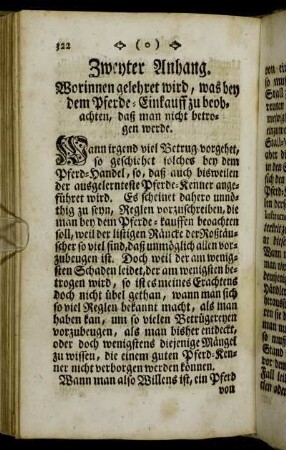 322 (o)
Zweyter Anhang.
Worinnen gelehret wird, was bey
dem Pferde-Einkauff zu beob-
achten, daß man nicht betro-
gen werde.
Wann irgend viel Betrug vorgehet,
so geschiehet solches bey dem
Pferd-Handel, so, daß auch bisweilen
der ausgelernteste Pferde-Kenner ange-
führet wird. Es scheinet dahero unnö-
thig zu seyn, Reglen vorzuschreiben, die
man bey dem Pferde-kauffen beoachten
soll, weil der listigen Räncke der Roßtäu-
scher so viel sind, daß unmöglich allen vor-
zubeugen ist. Doch weil der am wenig-
sten Schaden leidet, der am wenigsten be-
trogen wird, so ist es meines Erachtens
doch nicht übel gethan, wann man sich
so viel Reglen bekannt macht, als man
haben kan, um so vielen Betrügereyen
vorzubeugen, als man bisher entdeckt,
oder doch wenigstens diejenige Mängel
zu wissen, die einem guten Pferd-Ken-
ner nicht verborgen werden können.
Wann man also Willens ist, ein Pferd
von